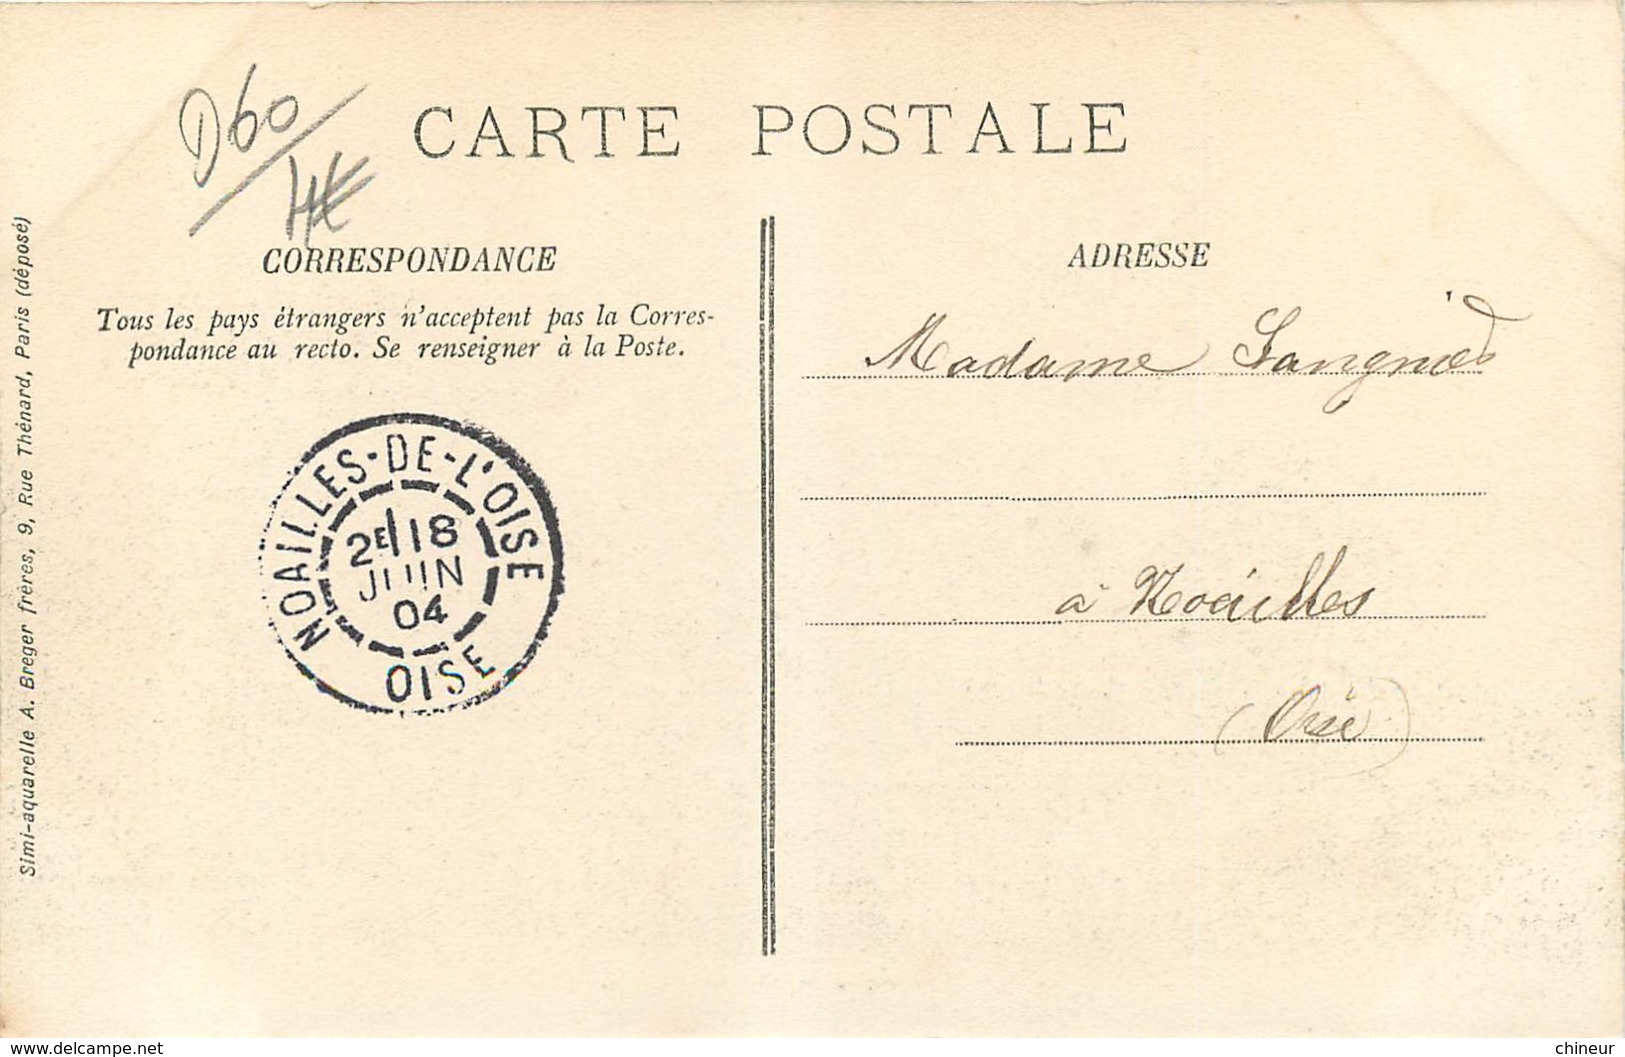 D60
4€
CARTE POSTALE
CORRESPONDANCE
Tous les pays étrangers n'acceptent pas la Corres-
pondance au recto. Se renseigner à la Poste.
NOAILLES-DE-L'OISE
2E 18
JUIN
04
OISE
Simi-aquarelle A. Breger frères, 9, Rue Thénard, Paris (déposé)
ADRESSE
Madame
à Noailles
(Oise)
www.delcampe.net
chineur